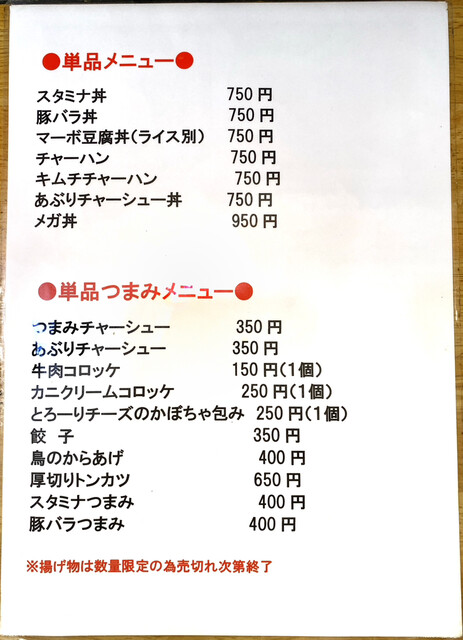 ●単品メニュー●
スタミナ丼 750円
豚バラ丼 750円
マーボ豆腐丼(ライス別) 750円
チャーハン 750円
キムチチャーハン 750円
あぶりチャーシュー丼 750円
メガ丼 950円
●単品つまみメニュー●
つまみチャーシュー 350円
あぶりチャーシュー 350円
牛肉コロッケ 150円(1個)
カニクリームコロッケ 250円(1個)
とろーりチーズのかぼちゃ包み 250円(1個)
餃 子 350円
鳥のからあげ 400円
厚切りトンカツ 650円
スタミナつまみ 400円
豚バラつまみ 400円
※揚げ物は数量限定の為売切れ次第終了